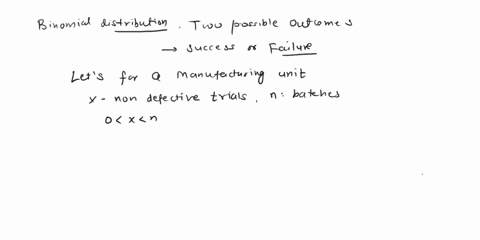 Binomial distribution. Two possible outcomes
→ success or Failure
Let's for a manufacturing unit
x - non defective trials, n: batches
0 < x < n